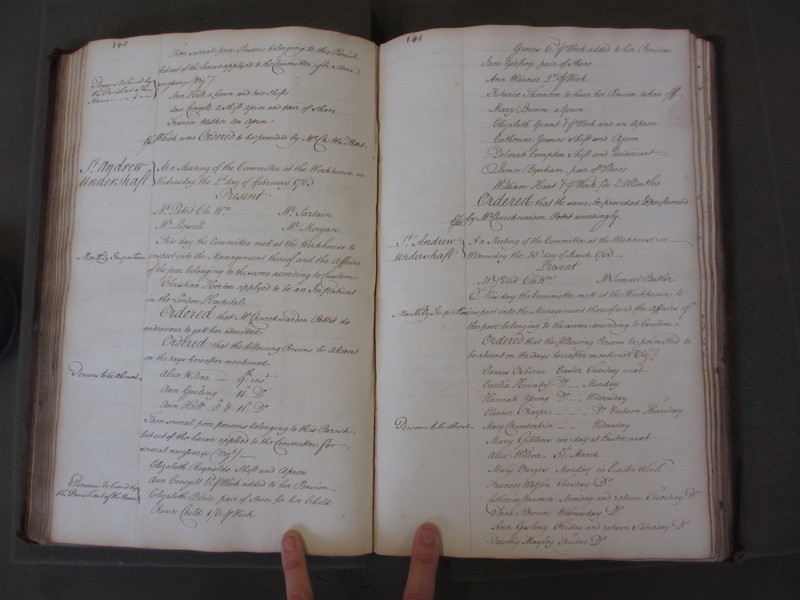 140
Then several poor Persons belonging to this Parish
but out of the house applied to the Committee for some
Persons relieved by
the Parish out of the
House
necessarys Viz:t
Ann a Gown and two Shifts
Ann a Shift Apron and pair of Shoes
Frances Walker an Apron
Which were Ordered to be provided by Mr. Ch: Wn. Pettit
St. Andrew
Undershaft
At a Meeting of the Committee at the Workhouse on
Wednesday the 2d day of February 1763
Present
Mr. Pettit Ch: Wn. Mr. Sartain
Mr. Mr. Morgan
Monthly Inspection
This day the Committee met at the Workhouse to
inspect into the Management thereof and the Affairs
of the poor belonging to the same according to Custom
Christian Horton applyed to be an In patient
in the London Hospital
Ordered that Mr. Churchwarden Pettit do
endeavour to gett her admitted
Ordered that the following Persons be absent
on the days hereafter mentioned
Persons to be Absent
Alice Wilcox 9th inst.
Ann Gosling 11th Do.
Ann 8th & 11th Do.
Then several poor persons belonging to this Parish
but out of the house applied to the Committee for
several necessarys Viz:t
Persons relieved by
the Parish out of the House
Elizabeth Reynolds Shift and Apron
Ann Cowgill added to her Pension
Elizabeth pair of Shoes for her Child
Child 1/6 Week
141
Week added to her Pension
Jane Godfrey pair of shoes
Ann Warner 2d. Week
Thornton to have her Pension taken off
Mary Brown a Gown
Elizabeth Grant Week and an Apron
Catherine Graves Shift and Apron
Deborah Compton Shift and Undercoat
James Bynham pair of Shoes
William Hart Week for 2 Months
Ordered that the same be provided & performed
by Mr. Churchwarden Pettit accordingly
St. Andrew
Undershaft
At a Meeting of the Committee at the Workhouse on
Wednesday the day of March 1763
Present
Mr. Pettit Ch: Wn. Mr. Samuel Butler
Monthly Inspection
This day the Committee mett at the Workhouse to
inspect into the Management thereof and the affairs of
the poor belonging to the same according to Custom
Ordered that the following Persons be permitted to
be absent on the days hereafter mentioned Viz:t
Persons to be Absent
James Osborne Easter Tuesday next
Cecilia Do. Monday
Hannah Young Do. Wednesday
Eleanor Sharpe Do. Thursday
Mary Chamberlain Wednesday
Mary Gibbons on day at Easter next
Alice Wilcox March
Mary Burges Monday in Easter Week
Frances Tuesday Do.
Catherine Monday and return Tuesday Do.
Brown Wednesday Do.
Ann Gosling Friday and return Saturday Do.
Dorothy Friday Do.